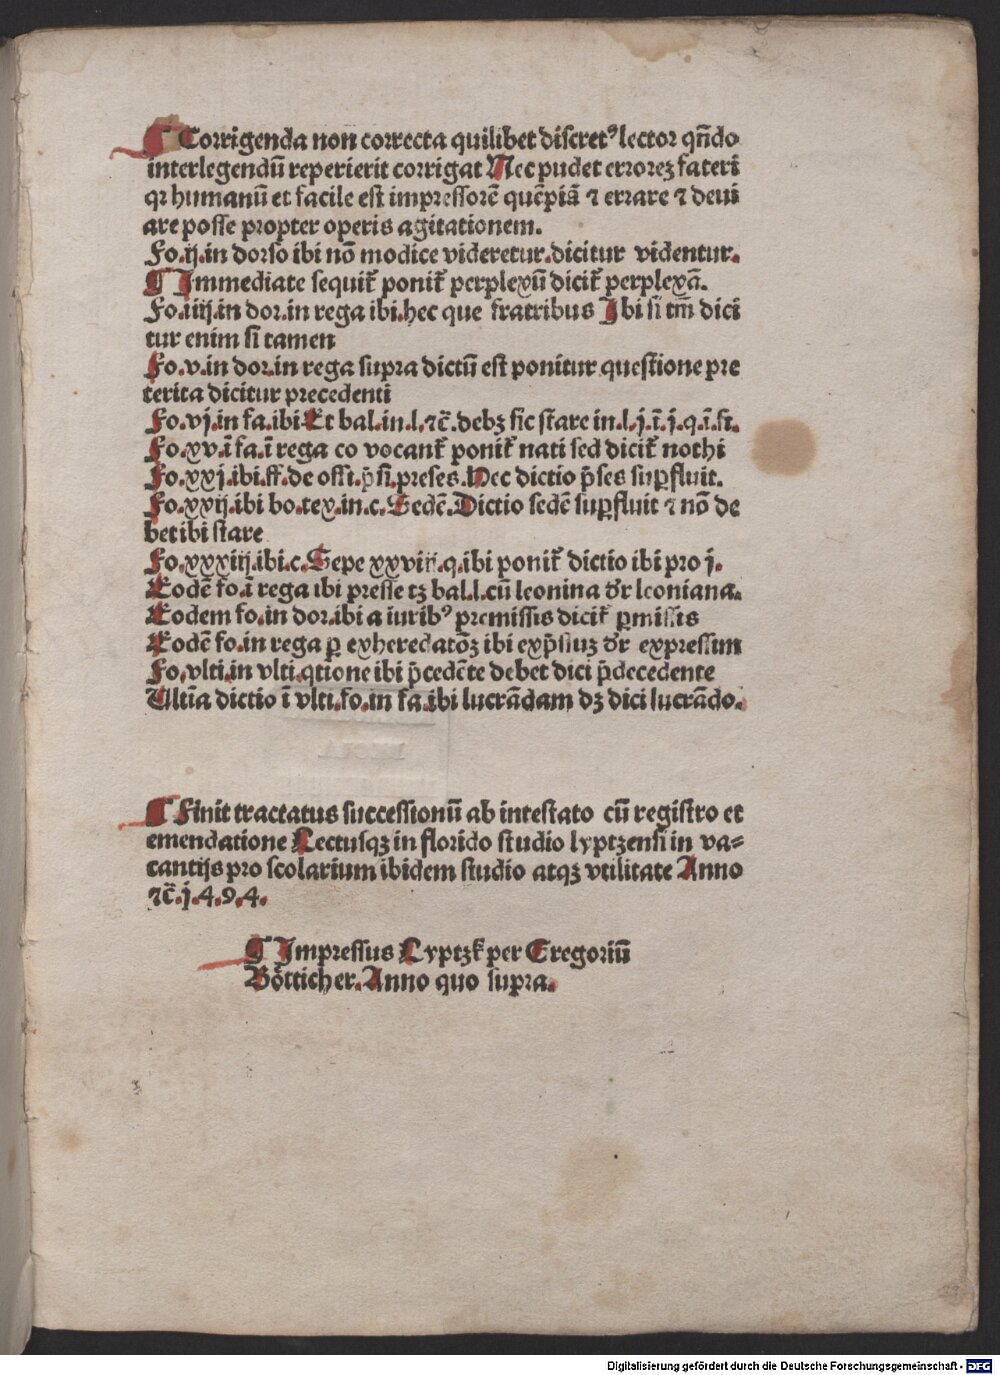 ¶ Corrigenda non correcta quilibet discretꝰ lector qn̄do
interlegendū reperierit corrigat Nec pudet erroreꝫ fateri
qr humanū et facile est impressorē quēpiā ⁊ errare ⁊ deui
are posse propter operis agitationem.
Fo.ij.in dorso ibi nō modice videretur.dicitur videntur.
¶ Immediate sequit᷑ ponit᷑ perplexū dicit᷑ perplexā.
Fo.iiij.in dor.in rega ibi.hec que fratribus Ibi si tm̄ dici
tur enim si tamen
Fo.v.in dor.in rega supra dictū est ponitur questione pre
terita dicitur precedenti
Fo.vj.in fa.ibi Et bal.in.l.⁊c̄.debꝫ sic stare in.l.j.ī.j.q.ī.fi.
Fo.xv.ī fa.ī rega co vocant᷑ ponit᷑ nati sed dicit᷑ nothi
Fo.xxj.ibi.ff.de offi.p̄si.preses.Hec dictio p̄ses suꝑfluit.
Fo.xxij.ibi bo.tex.in.c.Sedē.Dictio sedē suꝑfluit ⁊ nō de
bet ibi stare
Fo.xxxiij.ibi.c.Sepe xxvij.q.ibi ponit᷑ dictio ibi pro j.
Eodē fo.ī rega ibi presse tꝫ bal.l.cū leonina dr̄ leoniana.
Eodem fo.in dor.ibi a iuribꝰ premissis dicit᷑ ꝑmissis
Eodē fo.in rega ꝑ exheredatōꝫ ibi exp̄siuꝫ dr̄ expressim
Fo.vlti.in vlti.qtione ibi p̄cedēte debet dici p̄decedente
Ultīa dictio ī vlti.fo.in fa.ibi lucrādam dꝫ dici lucrādo.
¶ Finit tractatus successionū ab intestato cū registro et
emendatione Lectusqꝫ in florido studio lyptzensi in va⸗
cantijs pro scolarium ibidem studio atqꝫ vtilitate Anno
⁊c̄.j.4.9.4.
¶ Impressus Lyptzk per Gregoriū
Bötticher.Anno quo supra.
Digitalisierung gefördert durch die Deutsche Forschungsgemeinschaft - DFG